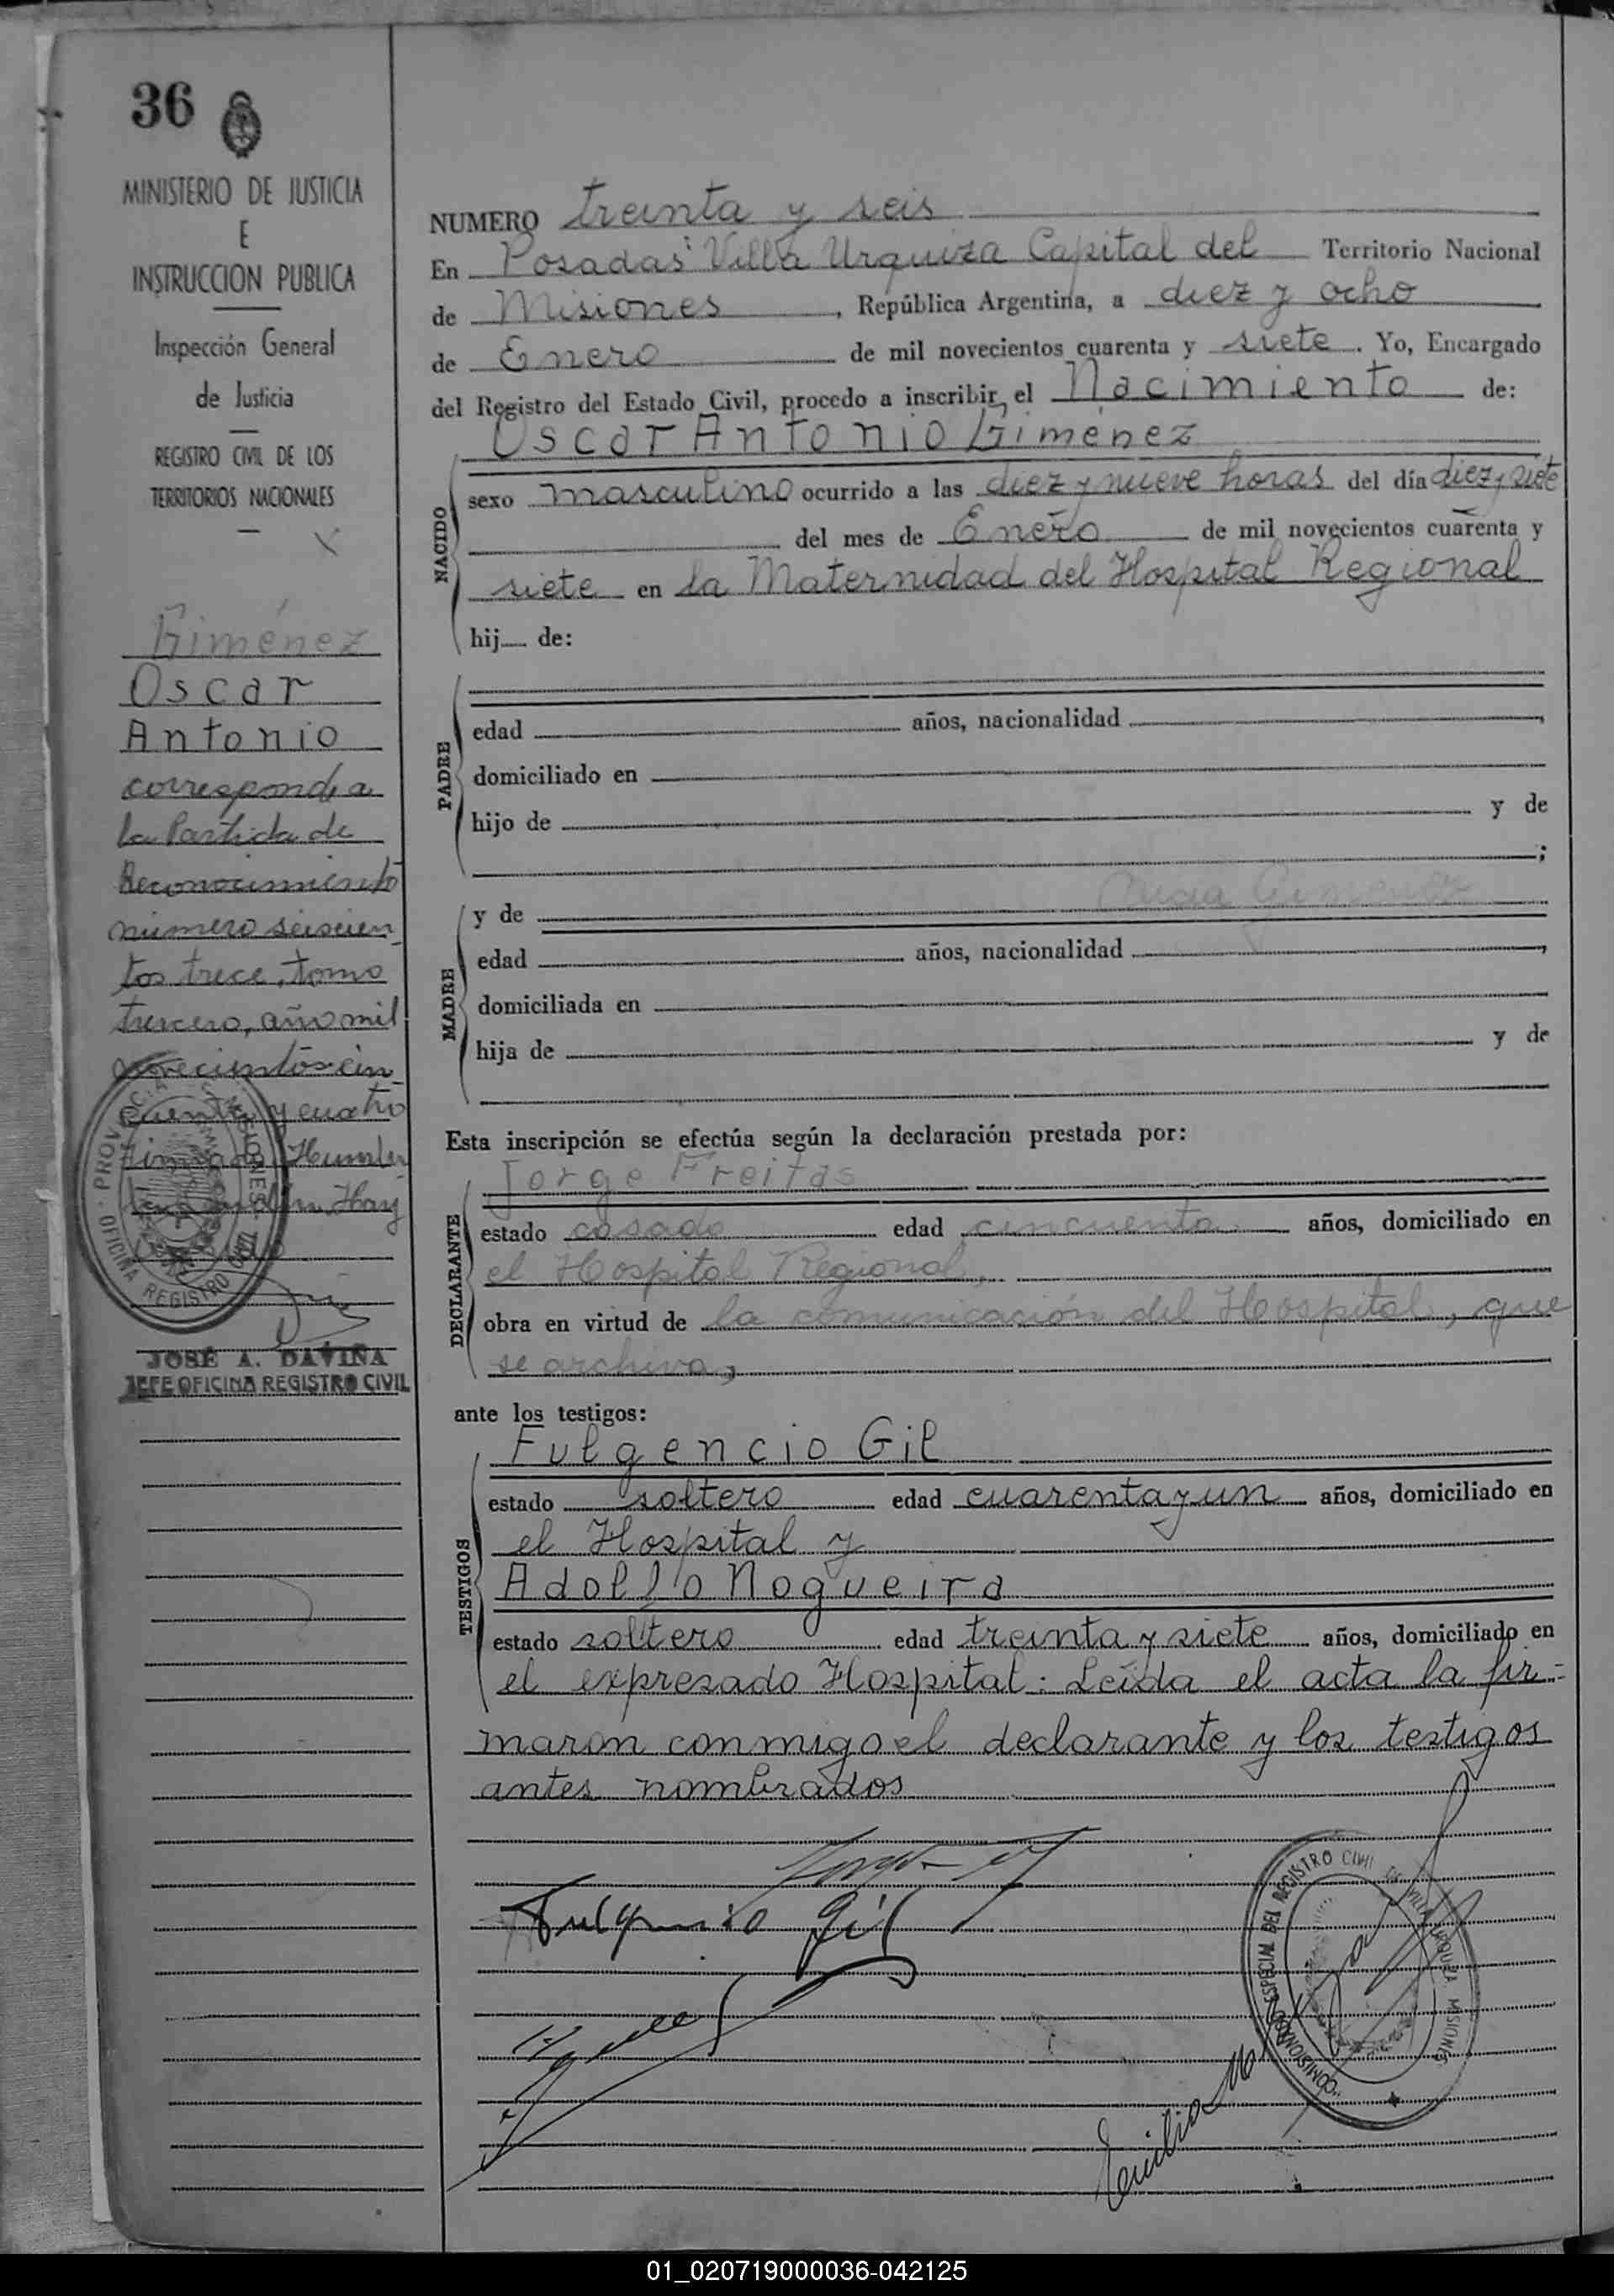 36
MINISTERIO DE JUSTICIA
E
INSTRUCCION PUBLICA
Inspección General
de Justicia
REGISTRO CIVIL DE LOS
TERRITORIOS NACIONALES
Giménez
Oscar
Antonio
corresponde a
la Partida de
Reconocimiento
número seiscien
tos trece, tomo
tercero, año mil
novecientos cin
cuenta y cuatro
Firmado Humber
Hay
PROV. MISIONES
OFICINA REGISTRO CIVIL
JOSÉ A. DAVIÑA
JEFE OFICINA REGISTRO CIVIL
NUMERO treinta y seis
En Posadas Villa Urquiza Capital del Territorio Nacional
de Misiones, República Argentina, a diez y ocho
de Enero de mil novecientos cuarenta y siete. Yo, Encargado
del Registro del Estado Civil, procedo a inscribir el Nacimiento de:
Oscar Antonio Giménez
NACIDO
sexo masculino ocurrido a las diez y nueve horas del día diez y siete
del mes de Enero de mil novecientos cuarenta y
siete en la Maternidad del Hospital Regional
hij de:
PADRE
edad años, nacionalidad
domiciliado en
hijo de y de
;
MADRE
y de Gimenez
edad años, nacionalidad ,
domiciliada en
hija de y de
Esta inscripción se efectúa según la declaración prestada por:
DECLARANTE
Jorge Freitas
estado casado edad cincuenta años, domiciliado en
el Hospital Regional,
obra en virtud de la comunicación del Hospital, que
se archiva,
ante los testigos:
TESTIGOS
Fulgencio Gil
estado soltero edad cuarenta y un años, domiciliado en
el Hospital y
Adolfo Nogueira
estado soltero edad treinta y siete años, domiciliado en
el expresado Hospital: Leída el acta la fir=
maron conmigo el declarante y los testigos
antes nombrados
Fulgencio Gil
COMISIONADO ESPECIAL DEL REGISTRO CIVIL DE VILLA URQUIZA MISIONES
Emilio
01_020719000036-042125